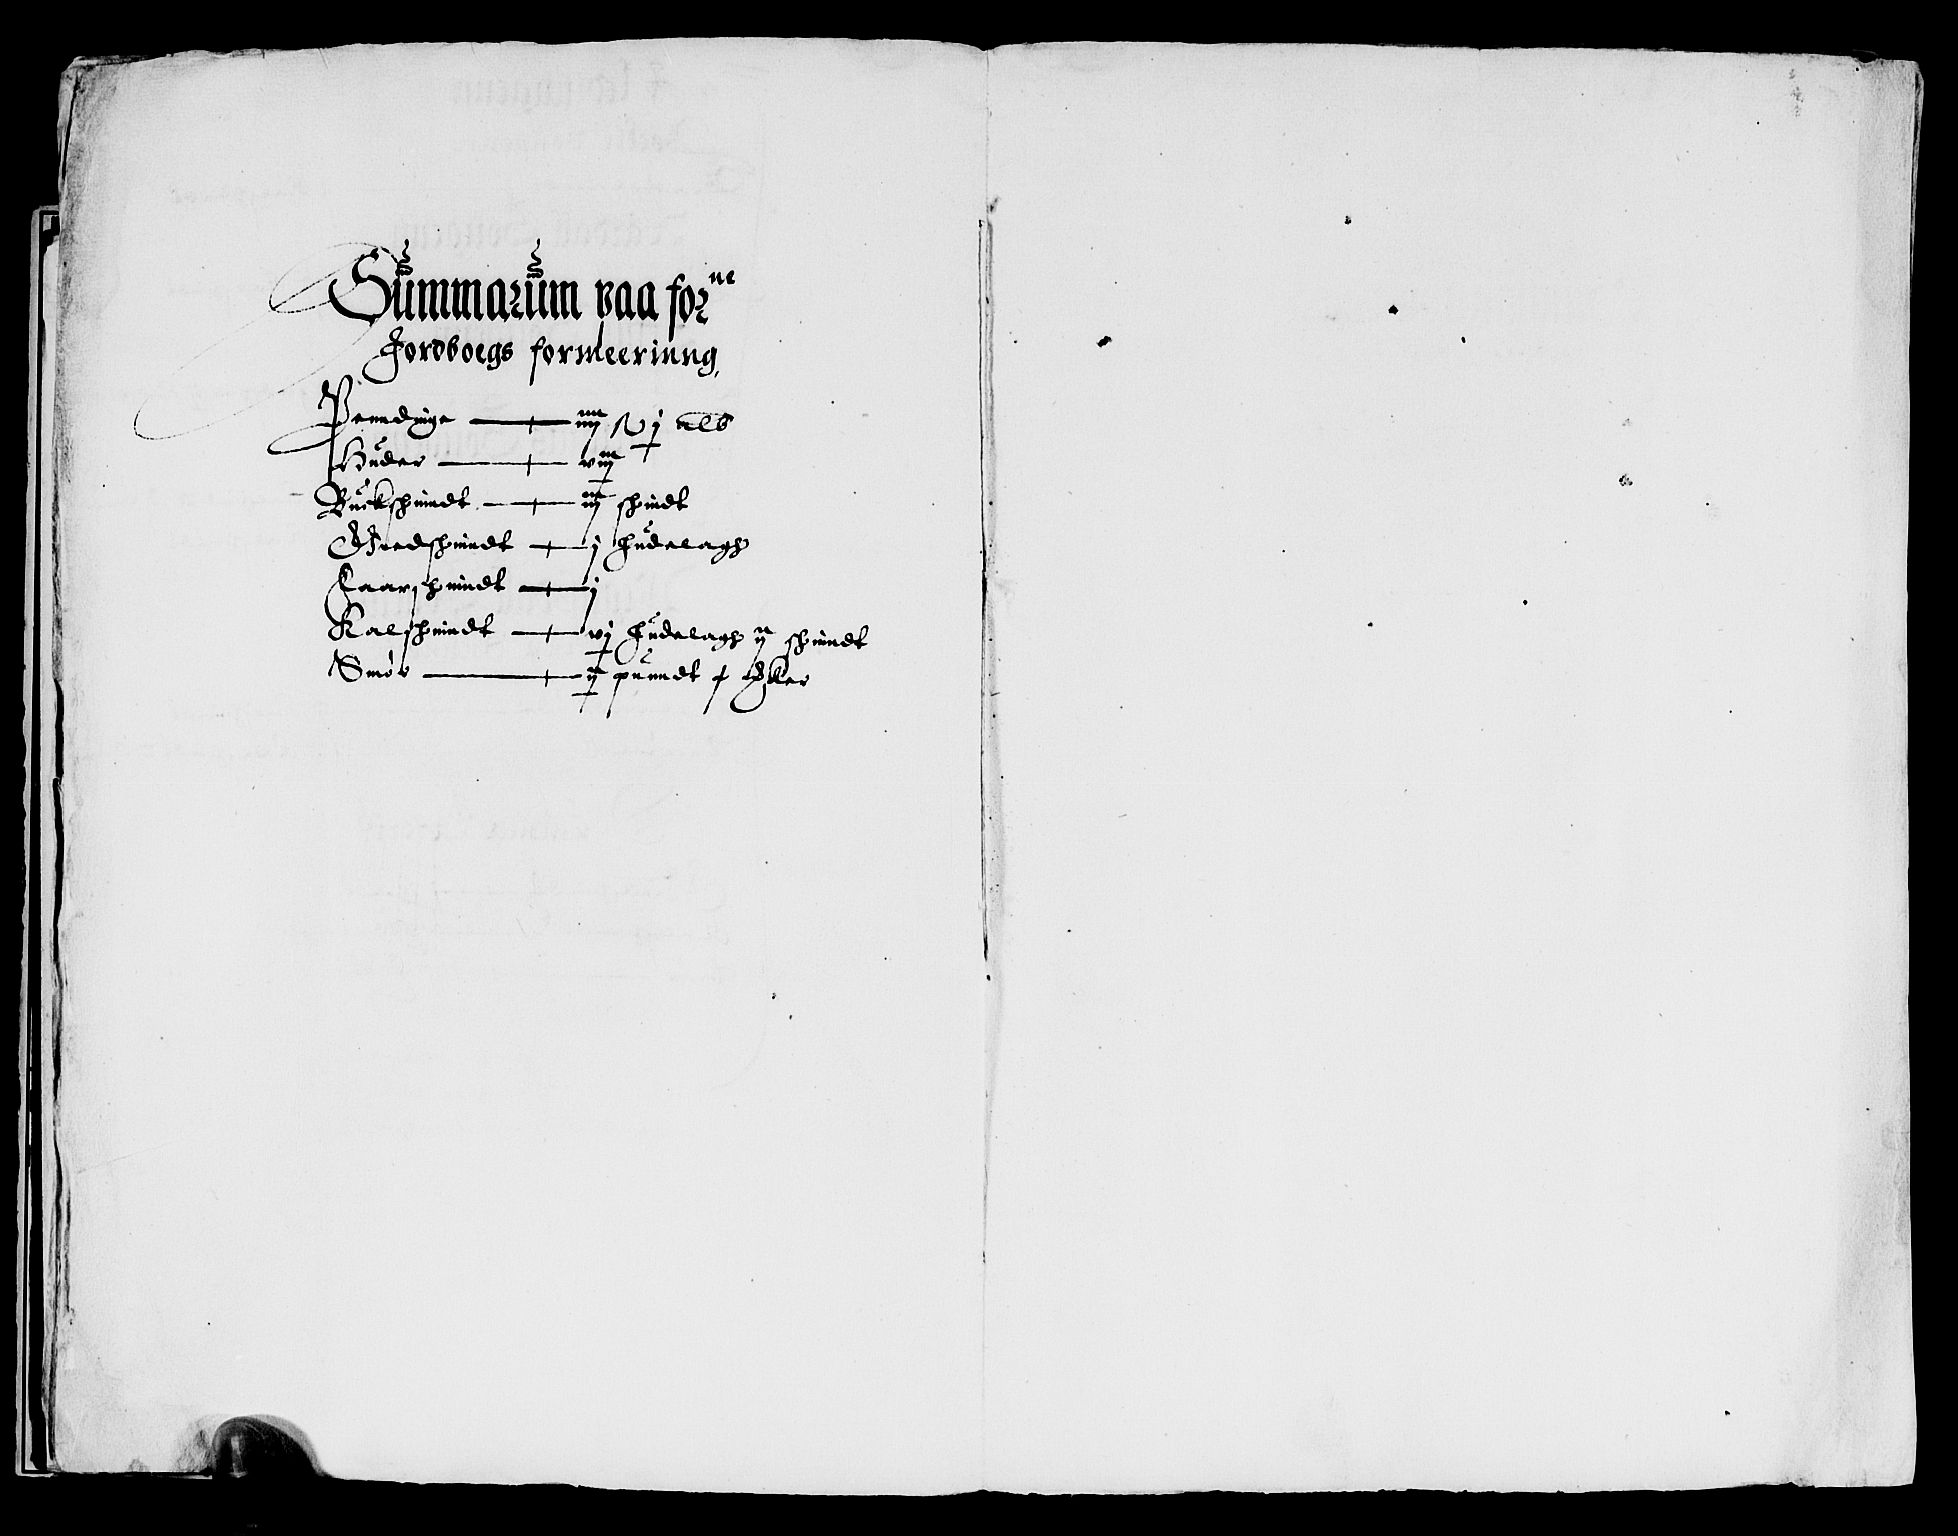 Summarum paa for^ne
Jordboegs formeerinng,
Penndinge — iiij
Huder — viij
Buckskinndt — iij skindt
Giedskinndt — j Hudelagh
Faarskinndt — j
Kalskinndt — vj Hudelagh ij skinndt
Smør — ij punndt